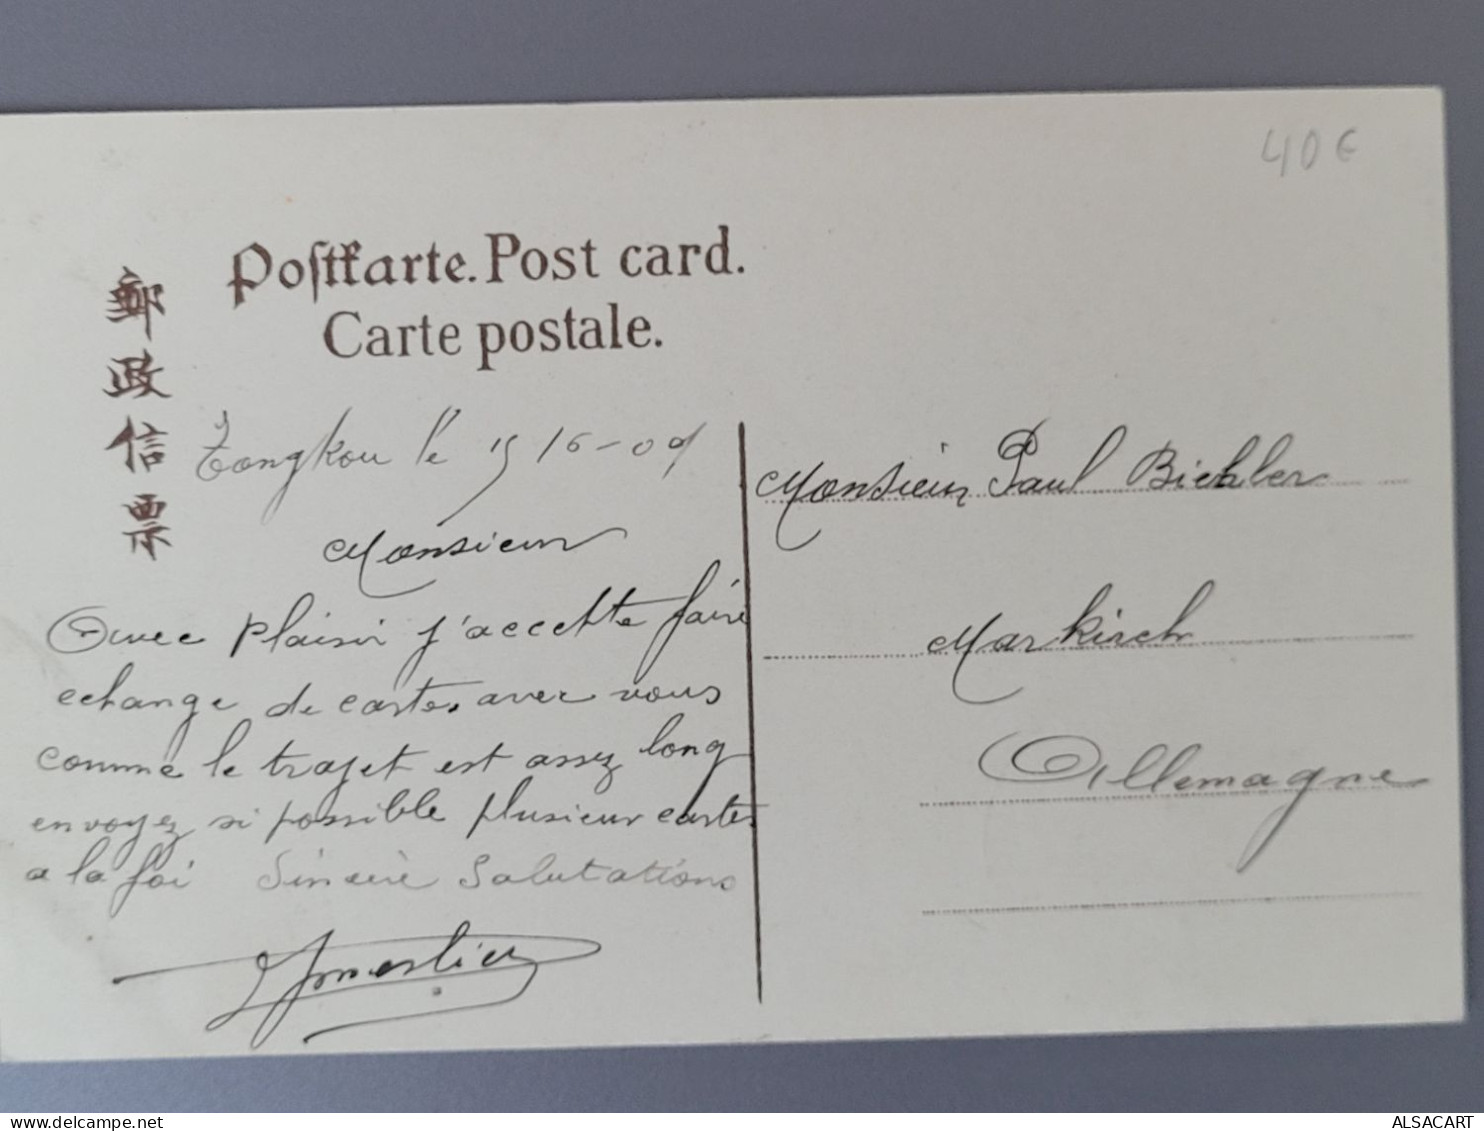 40€
Postkarte. Post card.
Carte postale.
郵政信票
Tongkou le 15/6-09
Monsieur
Avec plaisir j'accethte faire
echange de cartes avec vous
comme le trajet est assez long
envoyez si possible plusieur cartes
a la foi Sincère Salutations
Monsieur Paul Bichler
Markirch
Allemagne
ALSACART